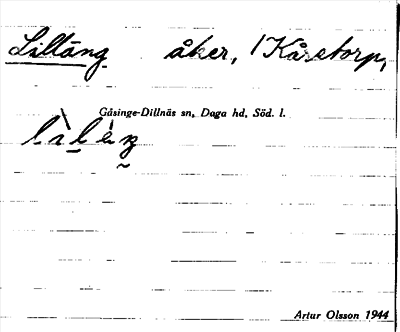 Liltäng åker, Kåretorp,
Gåsinge-Dillnäs sn, Daga hd, Söd. l.
Artur Olsson 1944